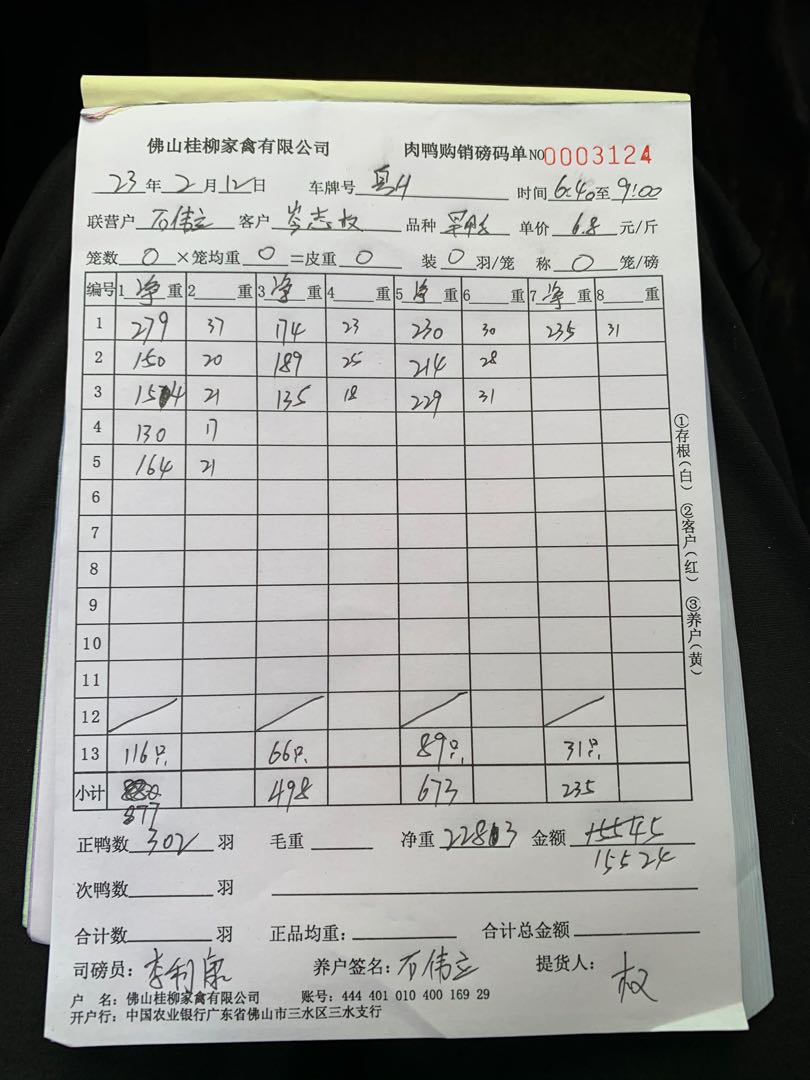 佛山桂柳家禽有限公司 肉鸭购销磅码单 NO 0003124
23年2月12日 车牌号 时间6:40至9:00
联营户 石伟立 客户 岑志权 品种 单价 6.8 元/斤
笼数 0 ×笼均重 0 =皮重 0 装 0 羽/笼 称 0 笼/磅
编号 1 净 重 2 重 3 净 重 4 重 5 净 重 6 重 7 净 重 8 重
1 279 37 174 23 230 30 235 31
2 150 20 189 25 214 28
3 154 21 135 18 229 31
4 130 17
5 164 21
6
7
8
9
10
11
12
13 116只 66只 89只 31只
小计 877 498 673 235
①存根(白) ②客户(红) ③养户(黄)
正鸭数 302 羽 毛重 净重 2283 金额 15545
15524
次鸭数 羽
合计数 羽 正品均重: 合计总金额
司磅员: 李利康 养户签名: 石伟立 提货人: 权
户 名: 佛山桂柳家禽有限公司 账号: 444 401 010 400 169 29
开户行: 中国农业银行广东省佛山市三水区三水支行